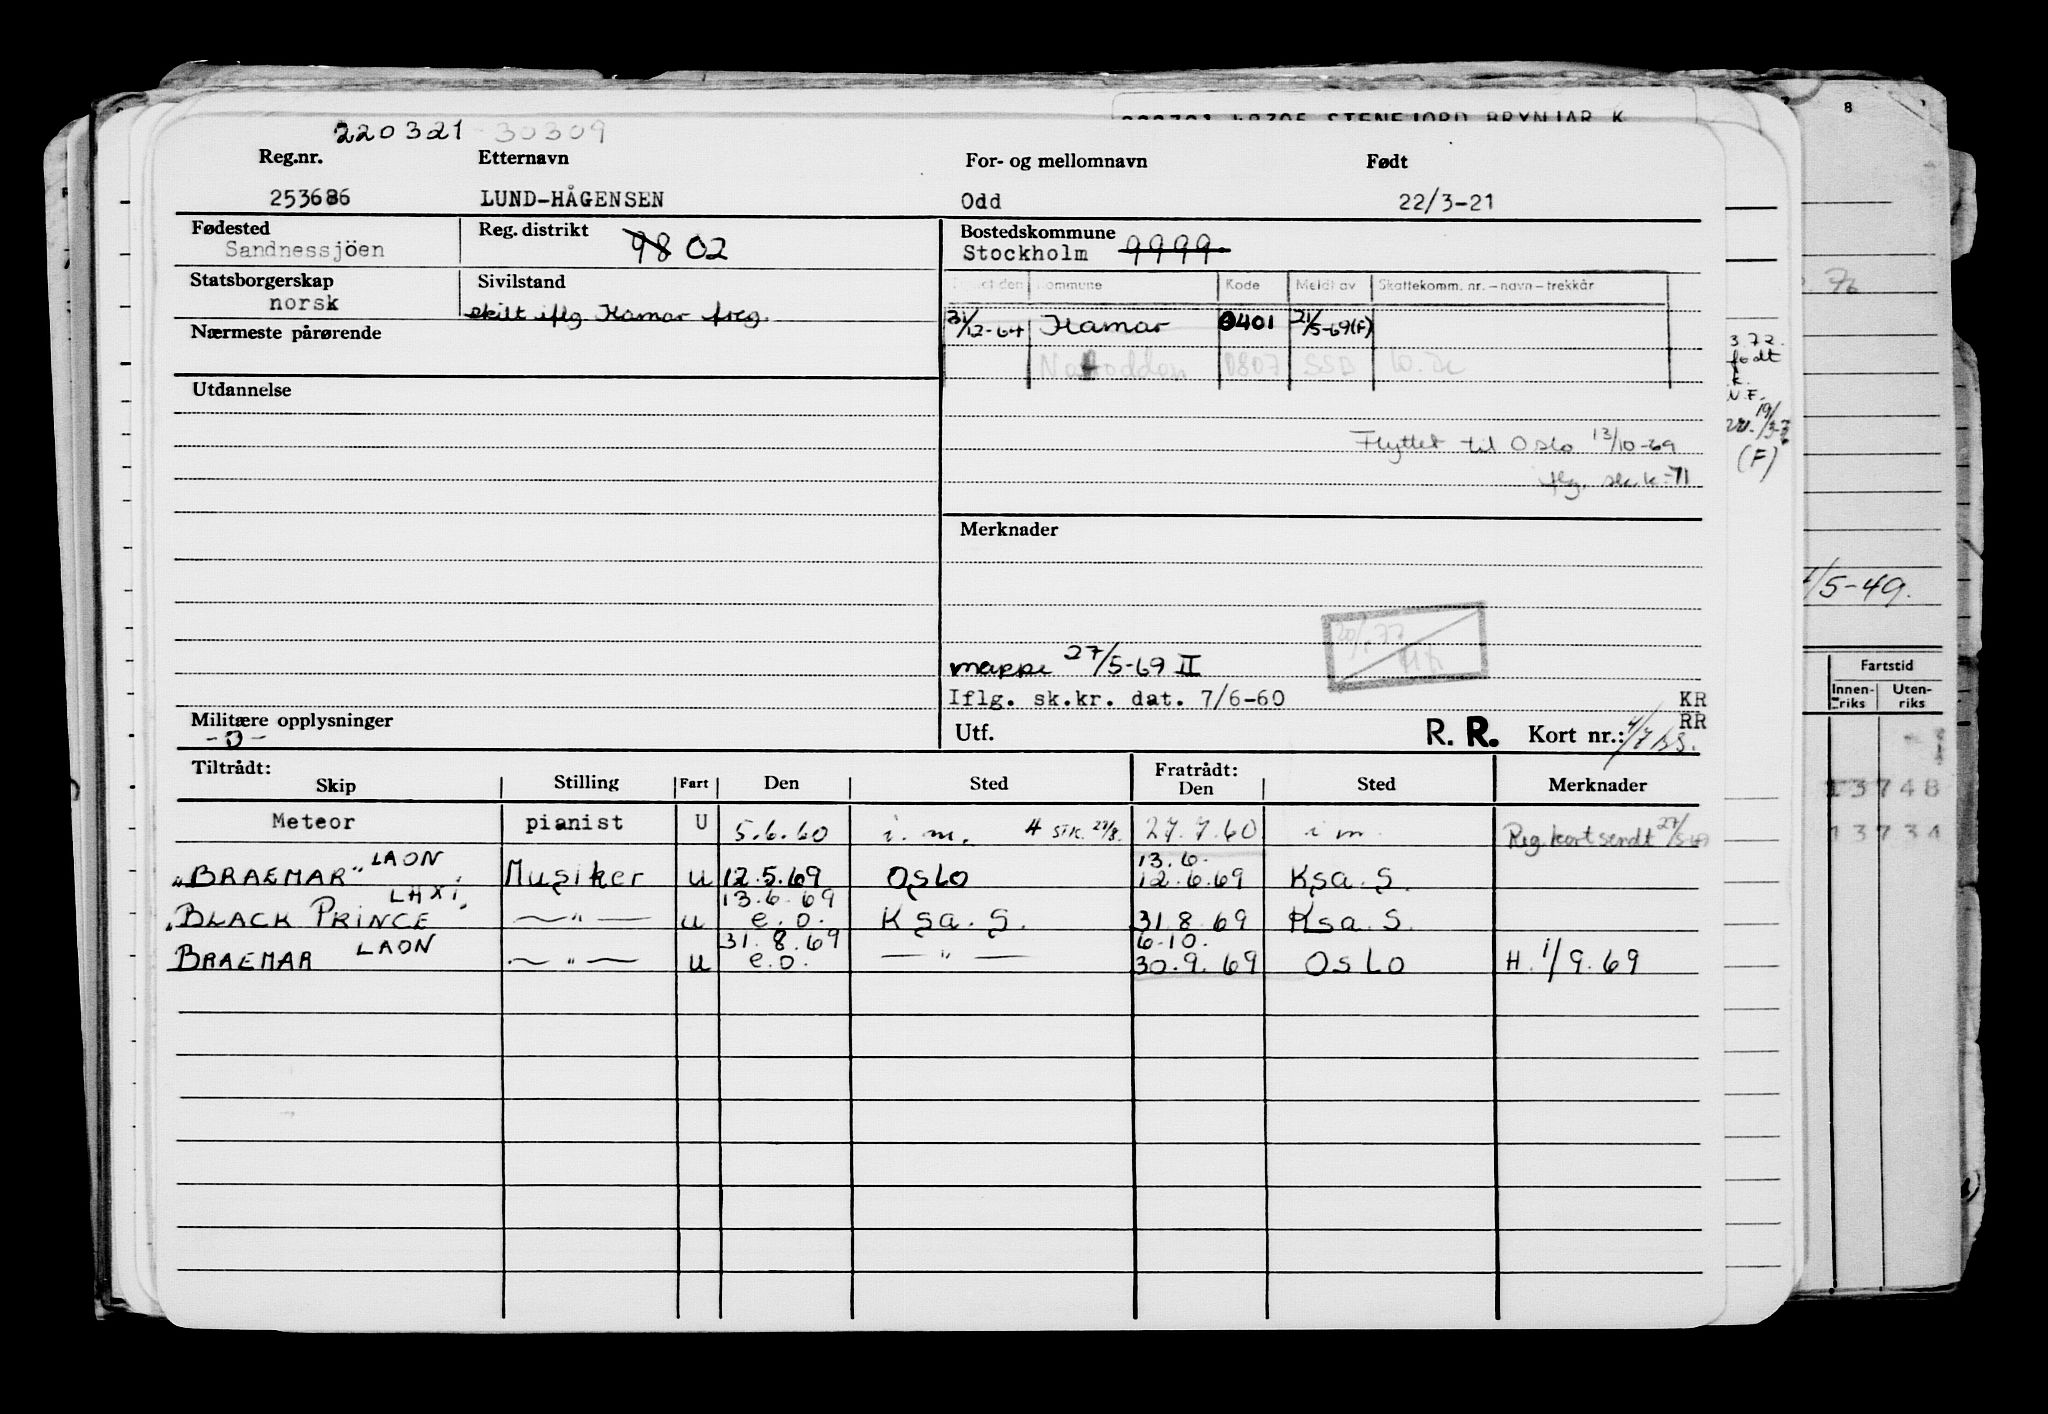 220321 30309
Reg.nr. Etternavn For- og mellomnavn Født
253686 LUND-HÅGENSEN Odd 22/3-21
Fødested Reg. distrikt 9802 Bostedskommune
Sandnessjöen Stockholm 9999.
Statsborgerskap Sivilstand Kommune Kode Meldt av Skattekomm. nr. – navn – trekkår
norsk skilt iflg Hamar freg. 31/12-64 Hamar 0401 21/5-69(F)
Nærmeste pårørende
Notodden 0807 SSB
Utdannelse
Flyttet til Oslo 13/10-69
iflg. sk.k-71
Merknader
mappe 27/5-69 II
Iflg. sk.kr. dat. 7/6-60 KR
Militære opplysninger Utf. R. R. Kort nr.: RR
-0-
Tiltrådt: Fratrådt:
Skip Stilling Fart Den Sted Den Sted Merknader
Meteor pianist U 5.6.60 i. m. 27.7.60 i m. Reg.kort sendt 27/5-69
"BRAEMAR" LAON Musiker U 12.5.69 Oslo 13.6. 12.6.69 Ksa. S.
"BLACK PRINCE" LHXI —"— u 13.6.69 e.o. Ksa. S. 31.8.69 Ksa. S.
BRAEMAR LAON —"— u 31.8.69 e.o. —"— 6-10. 30.9.69 Oslo H. 1/9.69
3.72.
født
(F)
8
/5-49.
Fartstid
Innen-riks Uten-riks
13748
13734